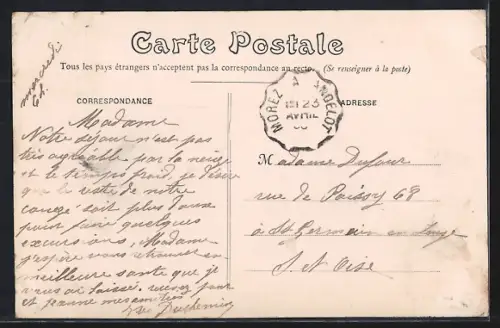 Carte Postale
Tous les pays étrangers n'acceptent pas la correspondance au recto. (Se renseigner à la poste)
mercredi
CORRESPONDANCE
ADRESSE
MOREZ A ANDELOT
23
AVRIL
Madame
Notre séjour n'est pas
très agréable par la neige
et le temps froid, je désire
que le reste de notre
congé soit plus doux
pour faire quelques
excursions, Madame
j'espère vous retrouver en
meilleure santé que je
vous ai laissée, recevez pour
et jeanne mes amitiés
Madame Dufour
rue de Poissy 68
à St Germain en Laye
S. et Oise